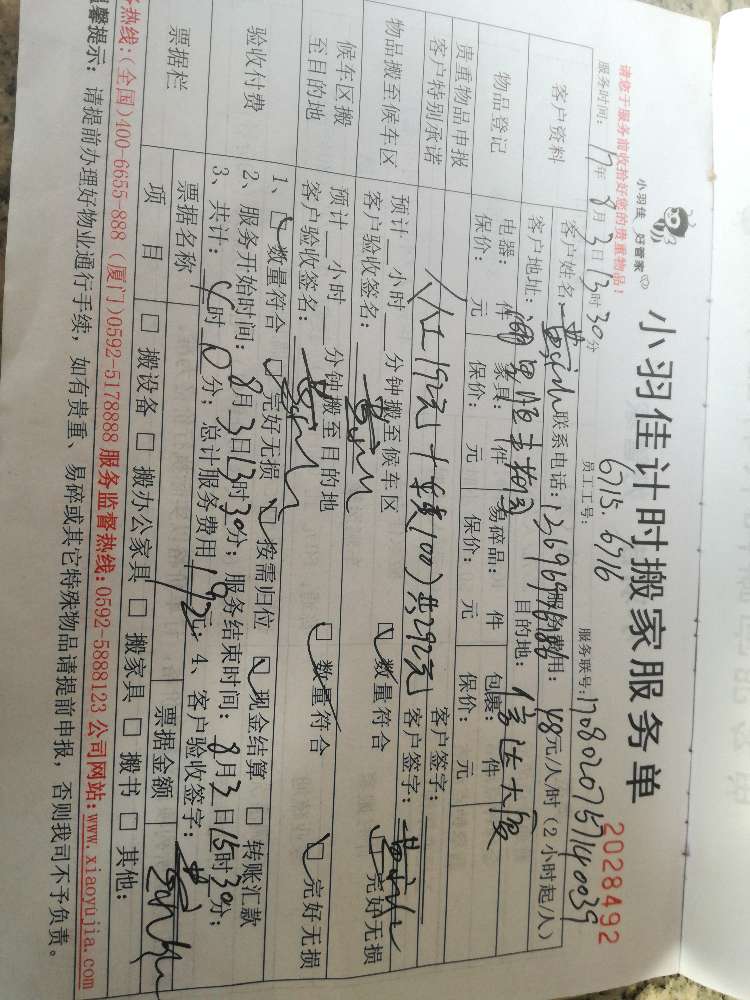 小羽佳 好管家
小羽佳计时搬家服务单
2028492
请您于服务前收拾好您的贵重物品！
员工工号：6715.6716
服务联号：1708020757140039
服务时间：17年8月3日13时30分
客户资料
客户姓名：
联系电话：
服务费用：48元/人/时（2小时起/人）
客户地址：
目的地：信达大厦
物品登记
电器： 件 家具： 件 易碎品： 件 包裹： 件
保价： 元 保价： 元 保价： 元 保价： 元
贵重物品申报
客户签字：
客户特别承诺
人工192元+ 100）共292元
客户签字：
物品搬至候车区
预计 小时 分钟搬至候车区
数量符合 完好无损
客户验收签名：
候车区搬至目的地
预计 小时 分钟搬至目的地
数量符合 完好无损
客户验收签名：
验收付费
1、 数量符合 完好无损 按需归位 现金结算 转账汇款
2、服务开始时间：8月3日13时30分；服务结束时间：8月3日15时30分；
3、共计：4时0分；总计服务费用192元；4、客户验收签字：
票据栏
票据名称
票据金额
项 目
搬设备 搬办公家具 搬家具 搬书 其他：
务热线：（全国）400-6655-888（厦门）0592-5178888 服务监督热线：0592-5888123 公司网站：www.xiaoyujia.com
温馨提示：请提前办理好物业通行手续，如有贵重、易碎或其它特殊物品请提前申报，否则我司不予负责。